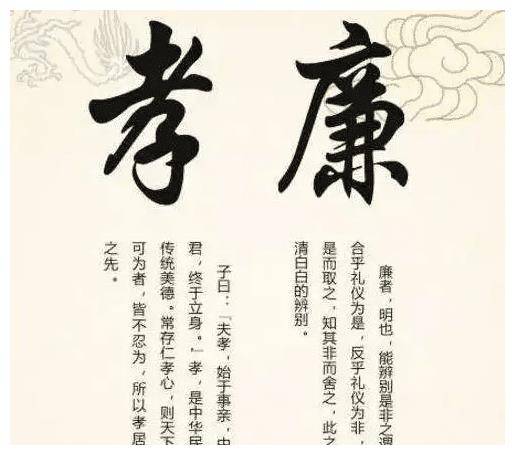 廉
廉者，明也，能辨别是非之谓
合乎礼仪为是，反乎礼仪为非，
是而取之，知其非而舍之，此之
清白白的辨别。
孝
子曰：「夫孝，始于事亲，中
君，终于立身。」孝，是中华民
传统美德。常存仁孝心，则天下
可为者，皆不忍为，所以孝居
之先。